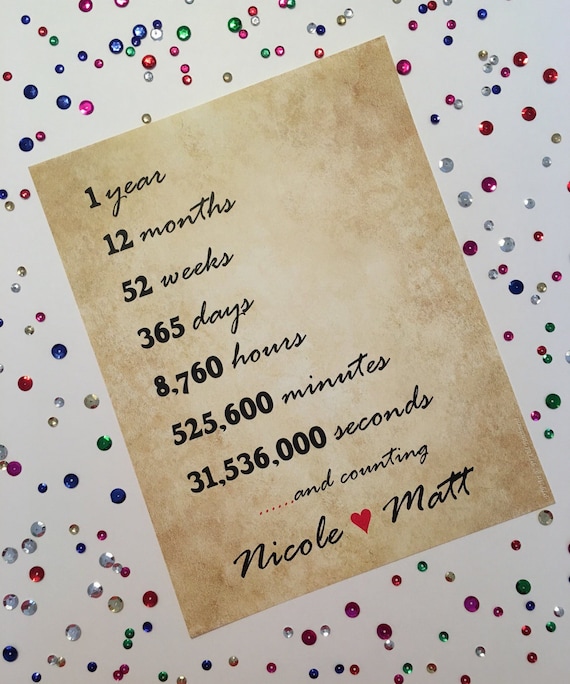 1 year
12 months
52 weeks
365 days
8,760 hours
525,600 minutes
31,536,000 seconds
......and counting
Nicole ♥ Matt